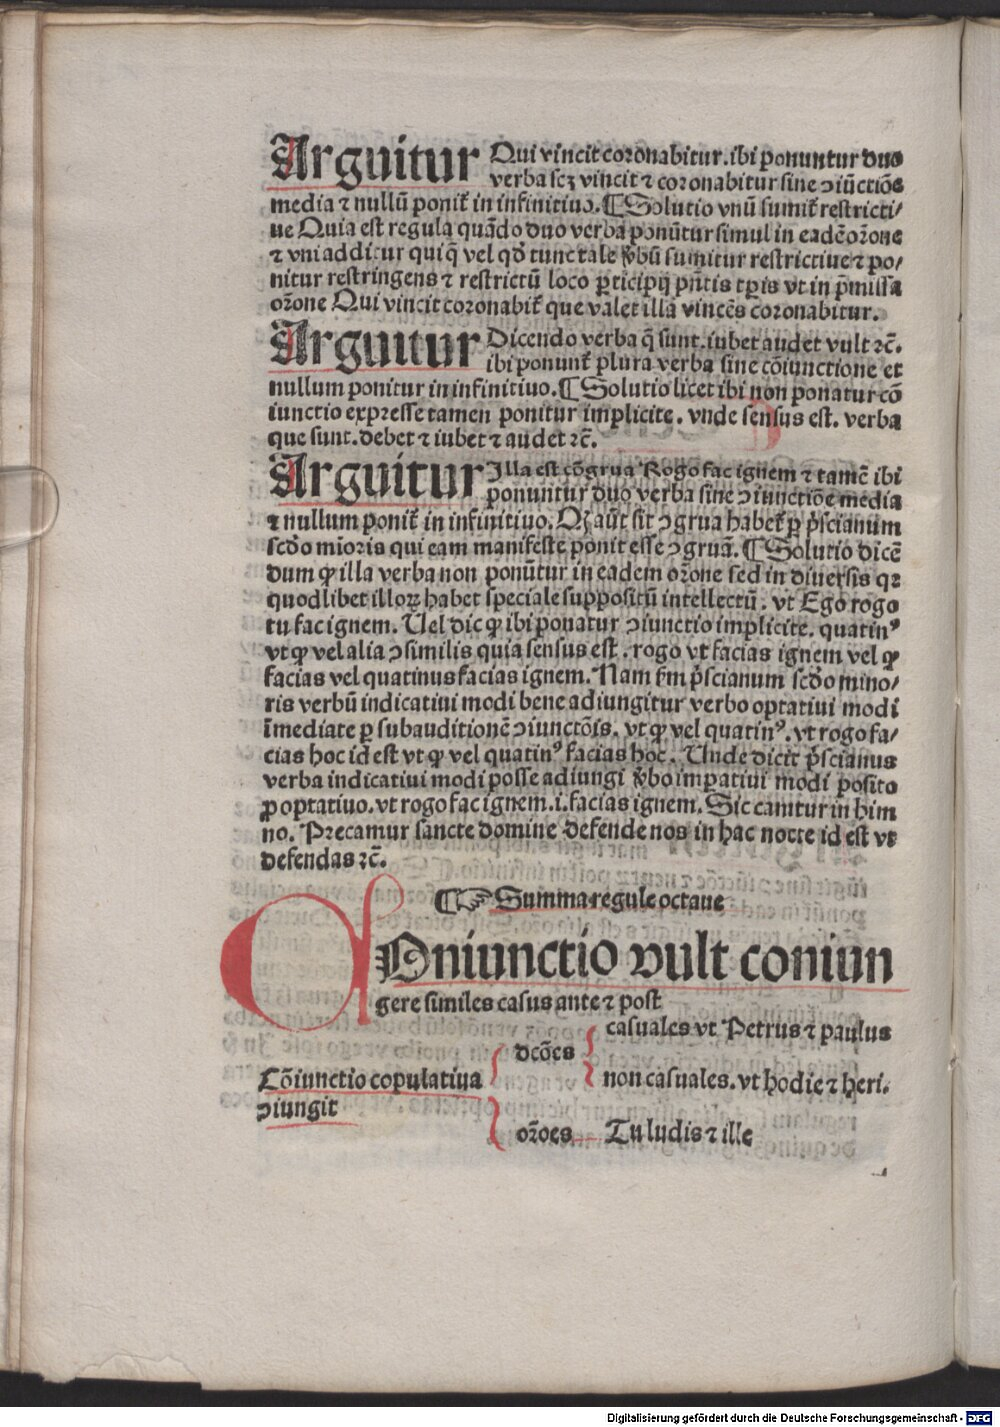 Arguitur Qui vincit coronabitur. ibi ponuntur duo
verba scꝫ vincit ⁊ coronabitur sine ↄiūctiōe
media ⁊ nullū ponit̄ in infinitiuo. ¶ Solutio vnū sumit̄ restricti/
ue Quia est regula quādo duo verba ponūtur simul in eadē or̄one
⁊ vni additur qui q̄ vel qd̓ tunc tale v̓bū sumitur restrictiue ⁊ po/
nitur restringens ⁊ restrictū loco ꝑticipij pn̄tis tꝑis vt in p̄missa
or̄one Qui vincit coronabit̄ que valet illa vincēs coronabitur.
Arguitur Dicendo verba q̄ sunt. iubet audet vult ⁊c̄.
ibi ponunt̄ plura verba sine cōiunctione et
nullum ponitur in infinitiuo. ¶ Solutio licet ibi non ponatur cō
iunctio expresse tamen ponitur implicite. vnde sensus est. verba
que sunt. debet ⁊ iubet ⁊ audet ⁊c̄.
Arguitur Illa est cōgrua Rogo fac ignem ⁊ tamē ibi
ponuntur duo verba sine ↄiunctiōe media
⁊ nullum ponit̄ in infinitiuo. Qꝫ aūt sit ↄgrua habet̄ ꝑ p̓scianum
scd̓o mioris qui eam manifeste ponit esse ↄgruā. ¶ Solutio dicē
dum ꝙ illa verba non ponūtur in eadem or̄one sed in diuersis qꝛ
quodlibet illoꝝ habet speciale suppositū intellectū. vt Ego rogo
tu fac ignem. Uel dic ꝙ ibi ponatur ↄiunctio implicite. quatinꝰ
vt ꝙ vel alia ↄsimilis quia sensus est. rogo vt facias ignem vel ꝙ
facias vel quatinus facias ignem. Nam sm̄ p̓scianum scd̓o mino/
ris verbū indicatiui modi bene adiungitur verbo optatiui modi
īmediate ꝑ subauditionē ↄiunctōis. vt ꝙ vel quatinꝰ. vt rogo fa/
cias hoc id est vt ꝙ vel quatinꝰ facias hoc. Unde dicit p̓scianus
verba indicatiui modi posse adiungi v̓bo imꝑatiui modi posito
ꝓ optatiuo. vt rogo fac ignem .i. facias ignem. Sic canitur in him
no. Precamur sancte domine defende nos in hac nocte id est vt
defendas ⁊c̄.
¶☞ Summa regule octaue
COniunctio vult coniun
gere similes casus ante ⁊ post
casuales vt Petrus ⁊ paulus
dcōes
Cōiunctio copulatiua non casuales. vt hodie ⁊ heri.
ↄiungit
or̄oes Tu ludis ⁊ ille
Digitalisierung gefördert durch die Deutsche Forschungsgemeinschaft - DFG